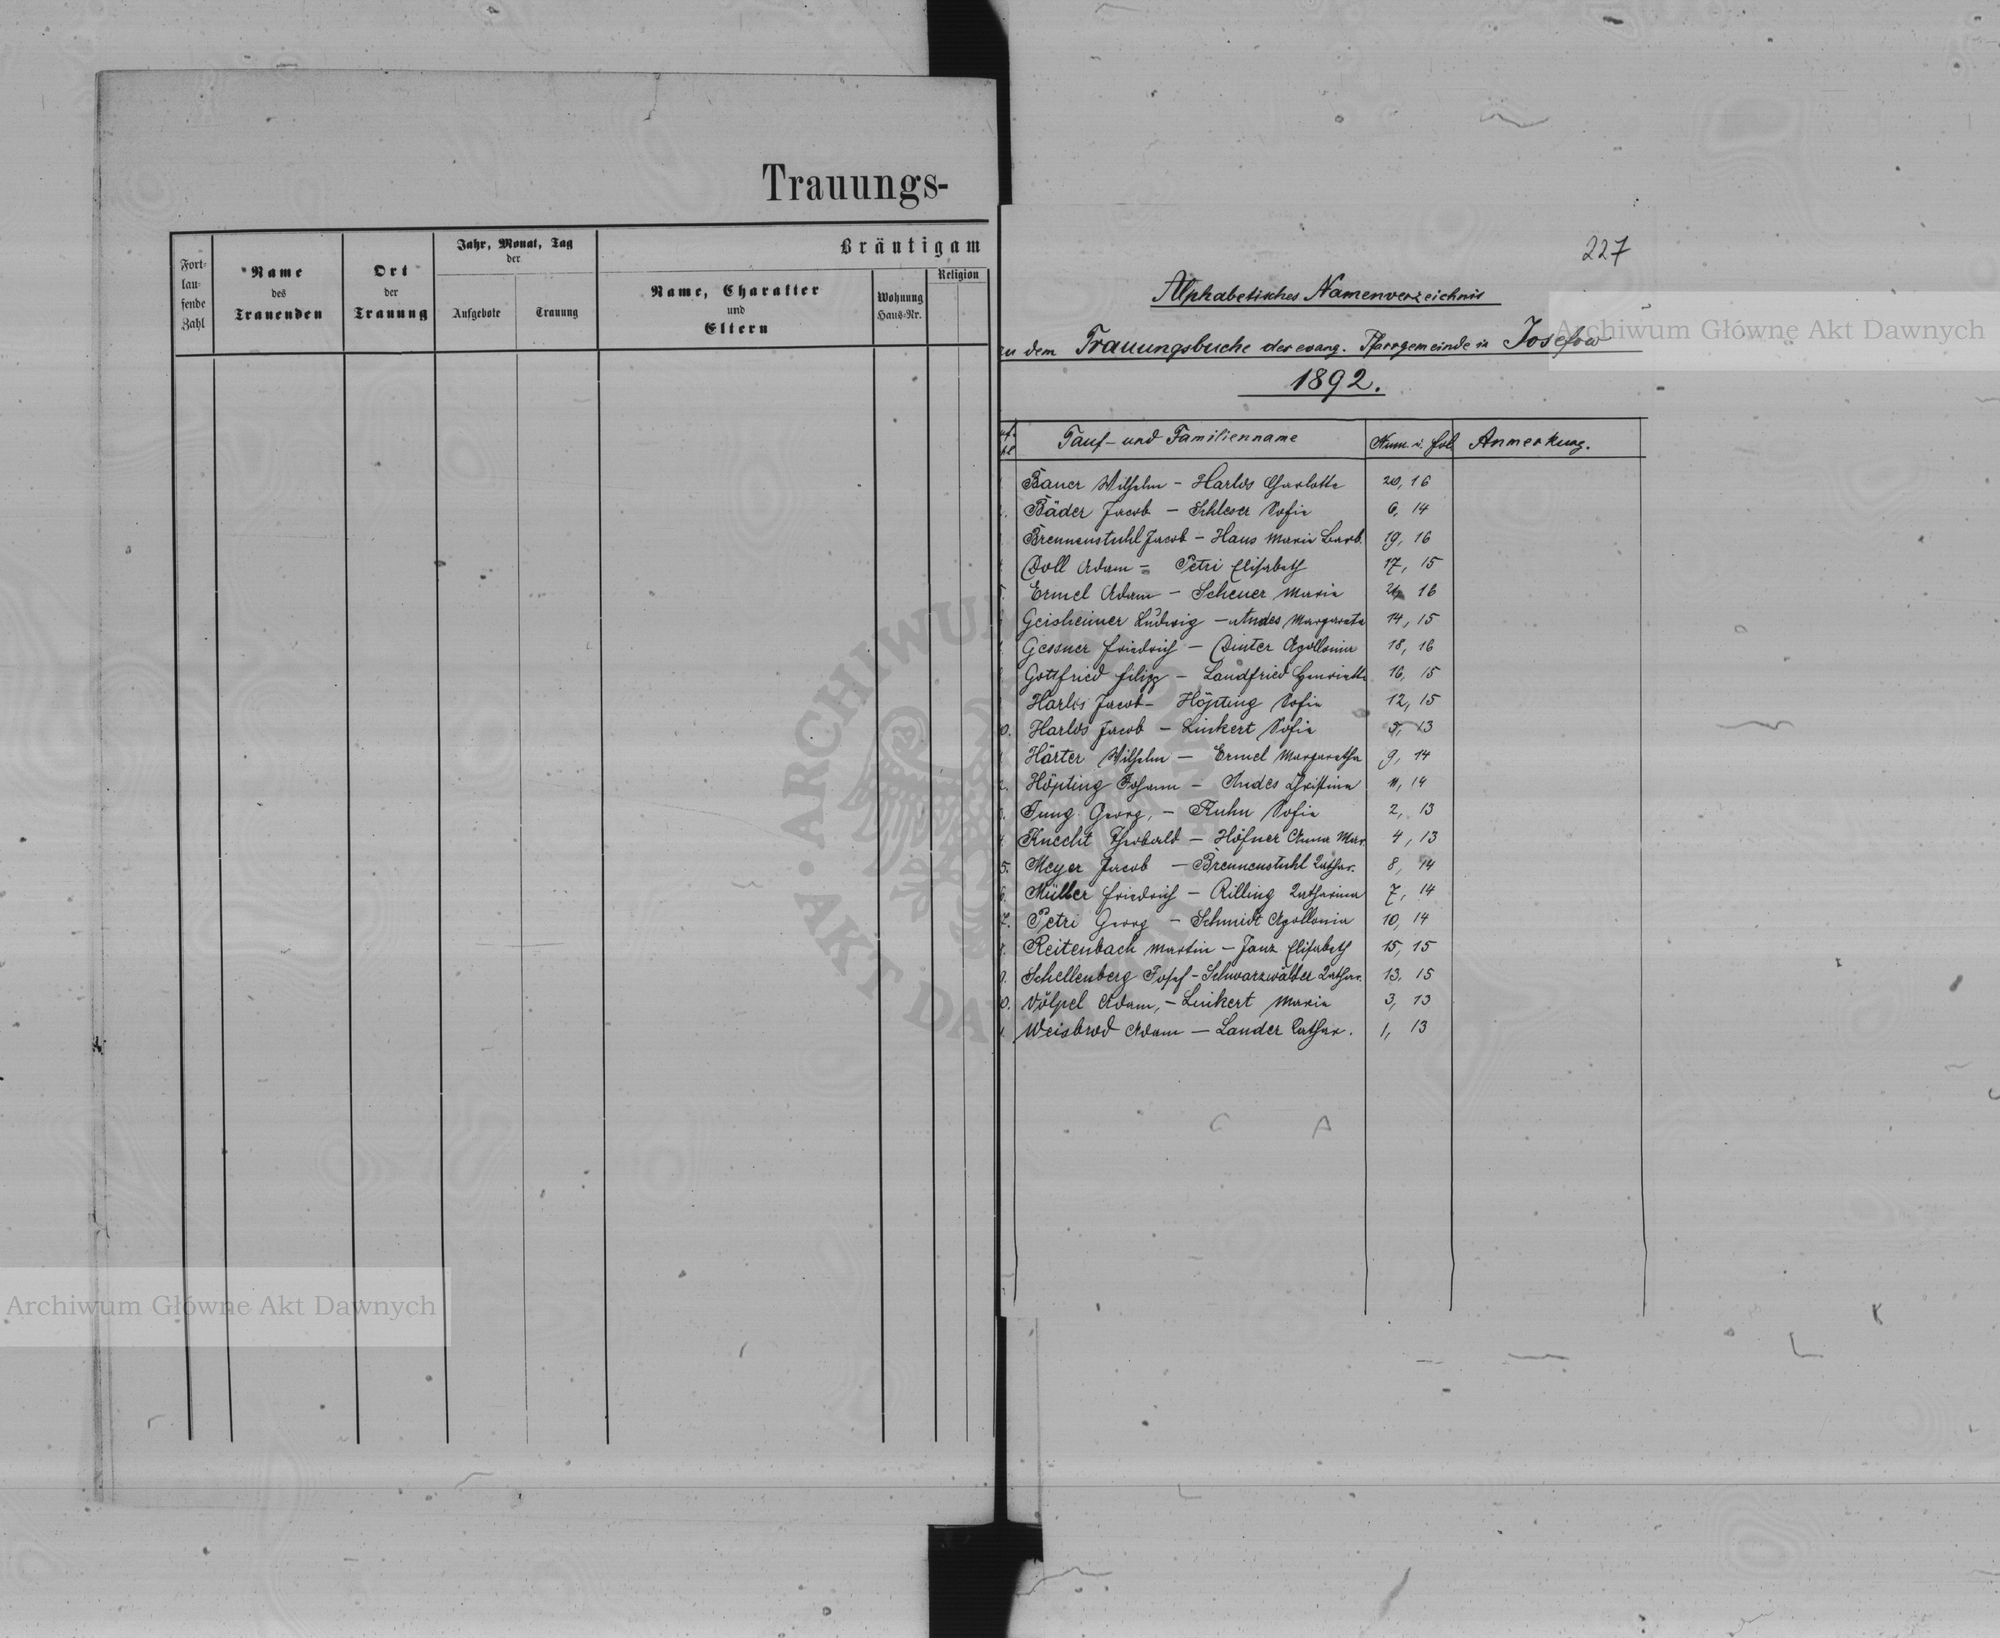 Trauungs-
Fort-
lau-
fende
Zahl
Name
des
Trauenden
Ort
der
Trauung
Jahr, Monat, Tag
der
Aufgebote
Trauung
Bräutigam
Name, Charakter
und
Eltern
Wohnung
Haus-Nr.
Religion
227
Alphabetisches Namenverzeichnis
zu dem Trauungsbuche der evang. Pfarrgemeinde in Josefow
1892.
Tauf- und Familienname Num. u. fol. Anmerkung.
Bauer Wilhelm – Harlos Charlotte 20, 16
Bäder Jacob – Schleser Sofie 6, 14
Brennenstuhl Jacob – Haus Marie Barb. 19, 16
Doll Adam – Petri Elisabeth 17, 15
5. Ermel Adam – Scheuer Marie 21, 16
Geisheimer Ludwig – Andes Margareta 14, 15
Gessner Friedrich – Dinter Apollonia 18, 16
Gottfried Filipp – Landfried Henriette 16, 15
Harlos Jacob – Höpting Sofie 12, 15
0. Harlos Jacob – Linkert Sofie 5, 13
Härter Wilhelm – Ermel Margaretha 9, 14
2. Höpting Johann – Andes Christina 11, 14
3. Jung Georg, – Kuhn Sofie 2, 13
4. Knecht Theobald – Höfner Anna Mar. 4, 13
5. Meyer Jacob – Brennenstuhl Kathar. 8, 14
6. Müller Friedrich – Rilling Katharina 7, 14
7. Petri Georg – Schmidt Apollonia 10, 14
8. Reitenbach Martin – Janz Elisabeth 15, 15
9. Schellenberg Josef – Schwarzwälder Kathar. 13, 15
0. Völpel Adam, – Linkert Marie 3, 13
1. Weisbrod Adam – Lander Kathar. 1, 13
Archiwum Główne Akt Dawnych
Archiwum Główne Akt Dawnych